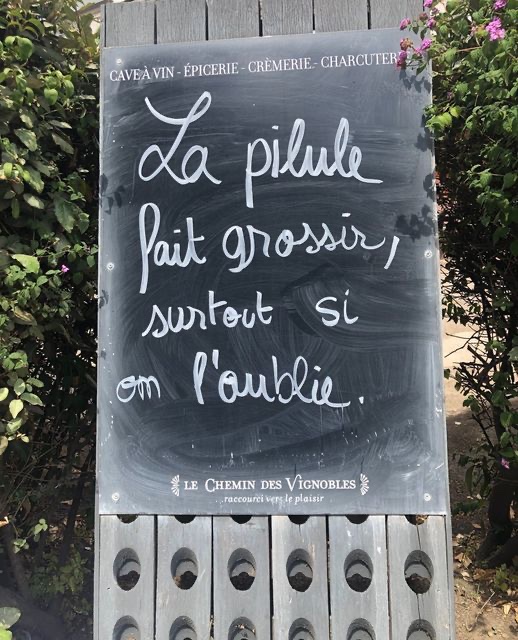 CAVE À VIN - ÉPICERIE - CRÈMERIE - CHARCUTER
La pilule
fait grossir,
surtout si
on l'oublie.
LE CHEMIN DES VIGNOBLES
...raccourci vers le plaisir